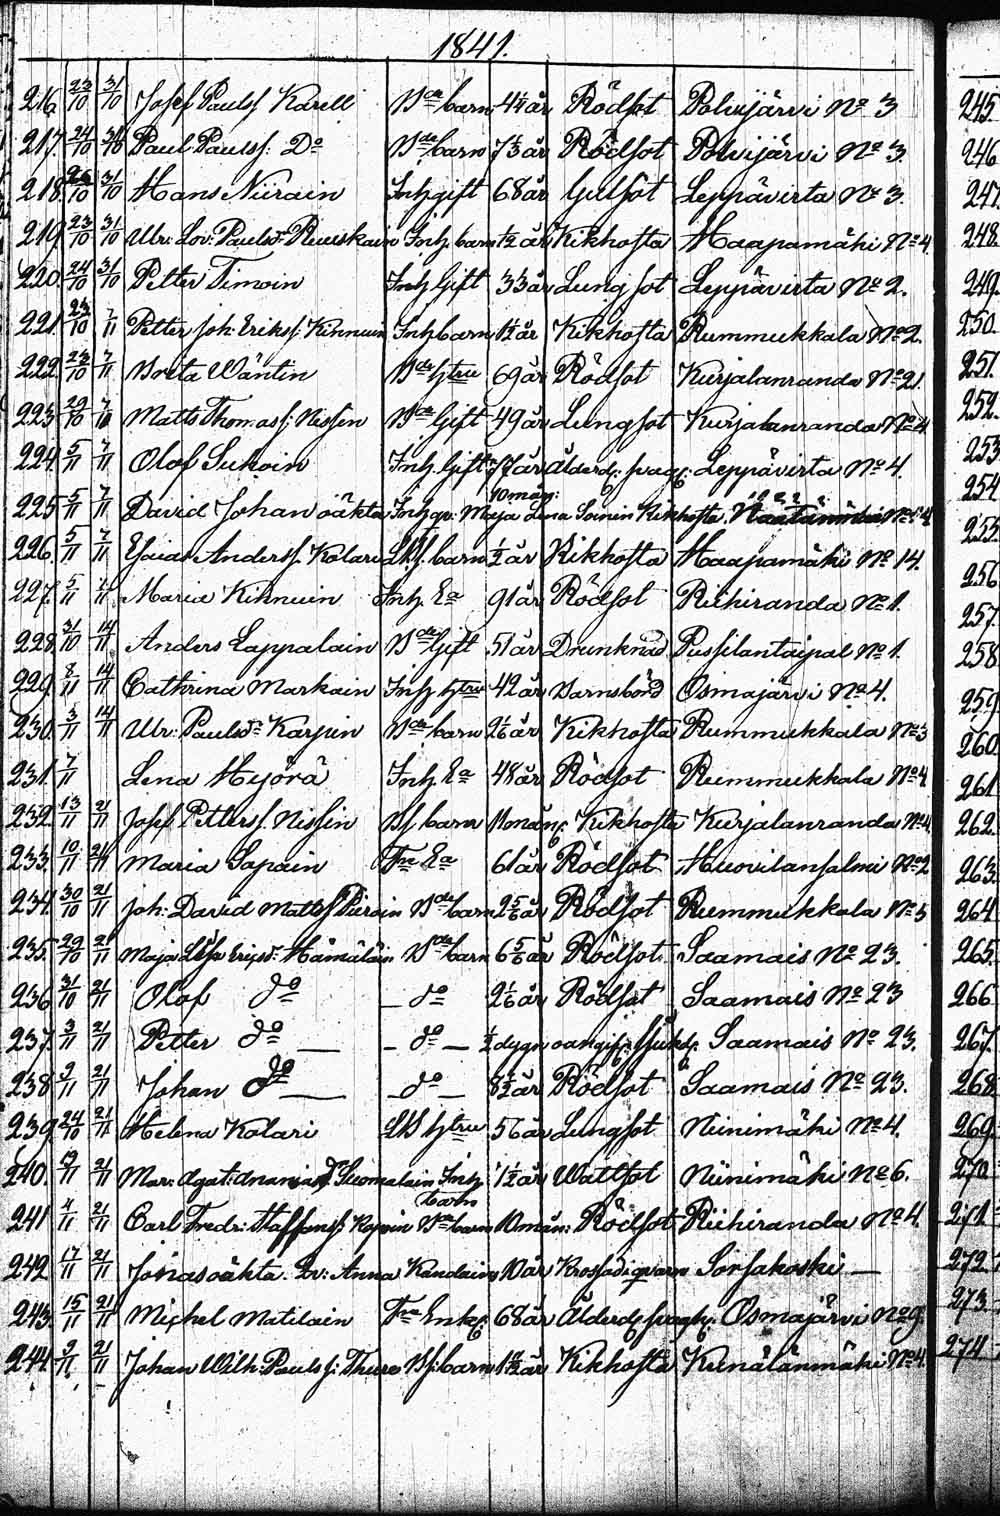 1841.
216. 23/10 31/10 Josef Paulss. Karell Bde barn 4½ år Rödsot Polvijärvi No 3
217. 24/10 31/10 Paul Paulss: Do Bde barn 7⅓ år Rödsot Polvijärvi No 3.
218. 26/10 31/10 Hans Nirain Inh gift 68 år Gulsot Leppävirta No 3.
219. 23/10 31/10 Ulr: Lov: Paulsdr Ruuskain Inh barn ½ år Kikhosta Haapamäki No 4.
220. 24/10 31/10 Petter Timoin Inh Gift 33 år Lungsot Leppävirta No 2.
221. 23/10 7/11 Petter Joh: Erikss: Kinnuin Inh barn 1½ år Kikhosta Rummukkala No 2.
222. 23/10 7/11 Breta Wäntin Bde htru 69 år Rödsot Kurjalanranda No 21.
223. 29/10 7/11 Matts Thomass: Nissin Bde Gift 49 år Lungsot Kurjalanranda No 4
224. 5/11 7/11 Olof Sukoin Inh. Gift 77 år Ålderd. svagh: Leppävirta No 4.
10 mån:
225. 5/11 7/11 David Johan oäkta Inh qv: Maja Lena Soinin Kikhosta.
226. 5/11 7/11 Esaias Anderss. Kolari LBs. barn ½ år Kikhosta Haapamäki No 14.
227. 5/11 7/11 Maria Kinnuin Inh. Ea 91 år Rödsot Riihiranda No 1.
228. 31/10 14/11 Anders Lappalain Bde Gift 51 år Drunknad Pussilantaipal No 1.
229. 8/11 14/11 Cathrina Markain Inh htru 42 år Barnsbörd Osmajärvi No 4.
230. 3/11 14/11 Ulr: Paulsdr Karpin Bde barn 2⅙ år Kikhosta Rummukkala No 3
231. 7/11 Lena Hyörä Inh. Ea 48 år Rödsot Rummukkala No 4
232. 13/11 21/11 Josef Petterss. Nissin Bs barn 11 mån: Kikhosta Kurjalanranda No 4.
233. 10/11 21/11 Maria Sapain Tre Ea 61 år Rödsot Huovilansalmi No 2
234. 30/10 21/11 Joh: David Mattss Piroin Bde barn 2⅚ år Rödsot Rummukkala No 5
235. 29/10 21/11 Maja Lisa Ericsdr Hämäläin Bde barn 6⅚ år Rödsot Saamais No 23.
236. 31/10 21/11 Olof do — do 2⅙ år Rödsot Saamais No 23
237. 3/11 21/11 Petter do — - do — ½ dygn oangif: sjukd. Saamais No 23.
238. 9/11 21/11 Johan do — do — 8½ år Rödsot Saamais No 23.
239. 24/10 21/11 Helena Kolari LBs htru 56 år Lungsot Niinimäki No 4.
240. 21/11 Mar: Agat: Ananiaedr Suomalain Inh barn 1½ år Wattsot Niinimäki No 6.
241. 4/11 21/11 Carl Fredr: Staffanss. Bde barn 10 mån: Rödsot Riihiranda No 4.
242. 17/11 21/11 Jonas oäkta. Anna Kandain 10 år Krossad i qvarn Sorsakoski —
243. 15/11 21/11 Michel Matilain Tre Enkl. 68 år Ålderd. svagh. Osmajärvi No 9.
244. 9/11 21/11 Johan Wilh: Paulss: Thure Bs: barn år Kikhosta Kunälänmäki No 4.
245.
246
247.
248.
249.
250.
251.
252.
253
254.
255.
256
257.
258
259
260.
261.
262.
263.
264
265.
266
267.
268
269.
270
271
272.
273.
274